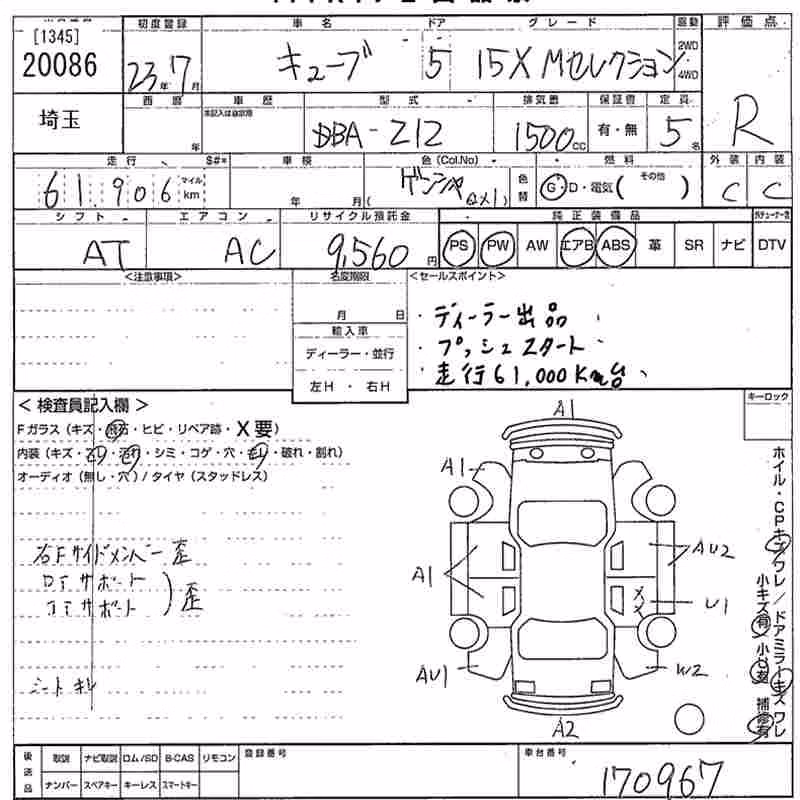 [1345]
20086
初度登録
車名
ドア
グレード
駆動
評価点
23年7月
キューブ
5
15X Mセレクション
2WD
4WD
R
埼玉
西暦
車歴
型式
排気量
保証書
定員
年
DBA-Z12
1500cc
有・無
5名
走行
S#*
車検
色(Col.No)
燃料
外装
内装
61,906
マイル
km
年
月
ゲンシャ
色替
G・D・電気(その他)
C
C
シフト
エアコン
リサイクル預託金
純正装備品
AT
AC
9,560円
PS
PW
AW
エアB
ABS
革
SR
ナビ
DTV
<注意事項>
名変期限
<セールスポイント>
月 日
・ディーラー出品
輸入車
・プッシュスタート
ディーラー・並行
・走行61,000Km台
左H・右H
<検査員記入欄>
キーロック
Fガラス(キズ・飛石・ヒビ・リペア跡・X要)
内装(キズ・スレ・汚れ・シミ・コゲ・穴・モレ・破れ・割れ)
オーディオ(無し・穴)/タイヤ(スタッドレス)
右Fサイドメンバー歪
サポート
サポート
歪
シート
A1
A1
A1
AU2
U1
AU1
W2
A2
ホイル・CPキズワレ/ドアミラーキズワレ
小キズ有 小凹有 補修有
後送品
取説
ナビ取説
ロム/SD
B-CAS
リモコン
ナンバー
スペアキー
キーレス
スマートキー
登録番号
車台番号
170967